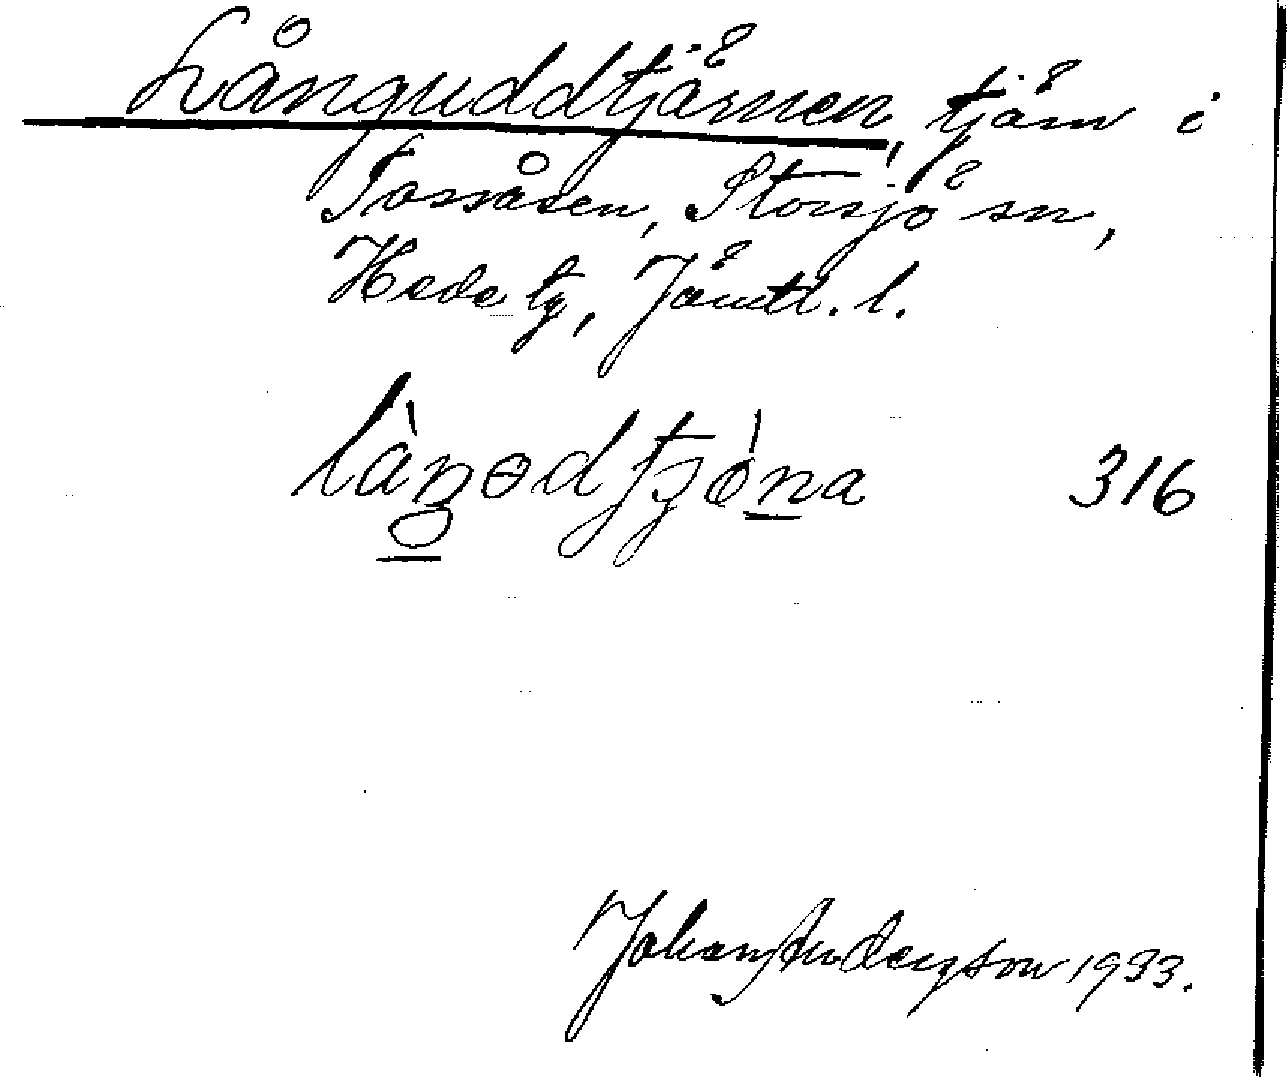 Långuddtjärnen, tjärn i
Fossåsen, Storsjö sn,
Hede tg, Jämtl. l.
làŋɵdtjo̍na 316
Johan Anderson 1933.